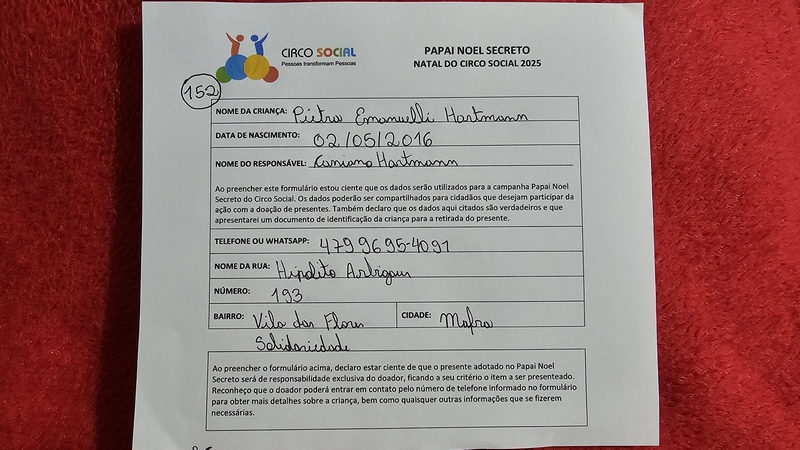 CIRCO SOCIAL
Pessoas transformam Pessoas
PAPAI NOEL SECRETO
NATAL DO CIRCO SOCIAL 2025
152
NOME DA CRIANÇA: Piétra Emanuelli Hartmann
DATA DE NASCIMENTO: 02/05/2016
NOME DO RESPONSÁVEL: Hartmann
Ao preencher este formulário estou ciente que os dados serão utilizados para a campanha Papai Noel
Secreto do Circo Social. Os dados poderão ser compartilhados para cidadãos que desejam participar da
ação com a doação de presentes. Também declaro que os dados aqui citados são verdadeiros e que
apresentarei um documento de identificação da criança para a retirada do presente.
TELEFONE OU WHATSAPP: 479 9695-4091
NOME DA RUA: Hipolito
NÚMERO: 193
BAIRRO: Vila das Flores CIDADE: Mafra
Solidariedade
Ao preencher o formulário acima, declaro estar ciente de que o presente adotado no Papai Noel
Secreto será de responsabilidade exclusiva do doador, ficando a seu critério o item a ser presenteado.
Reconheço que o doador poderá entrar em contato pelo número de telefone informado no formulário
para obter mais detalhes sobre a criança, bem como quaisquer outras informações que se fizerem
necessárias.